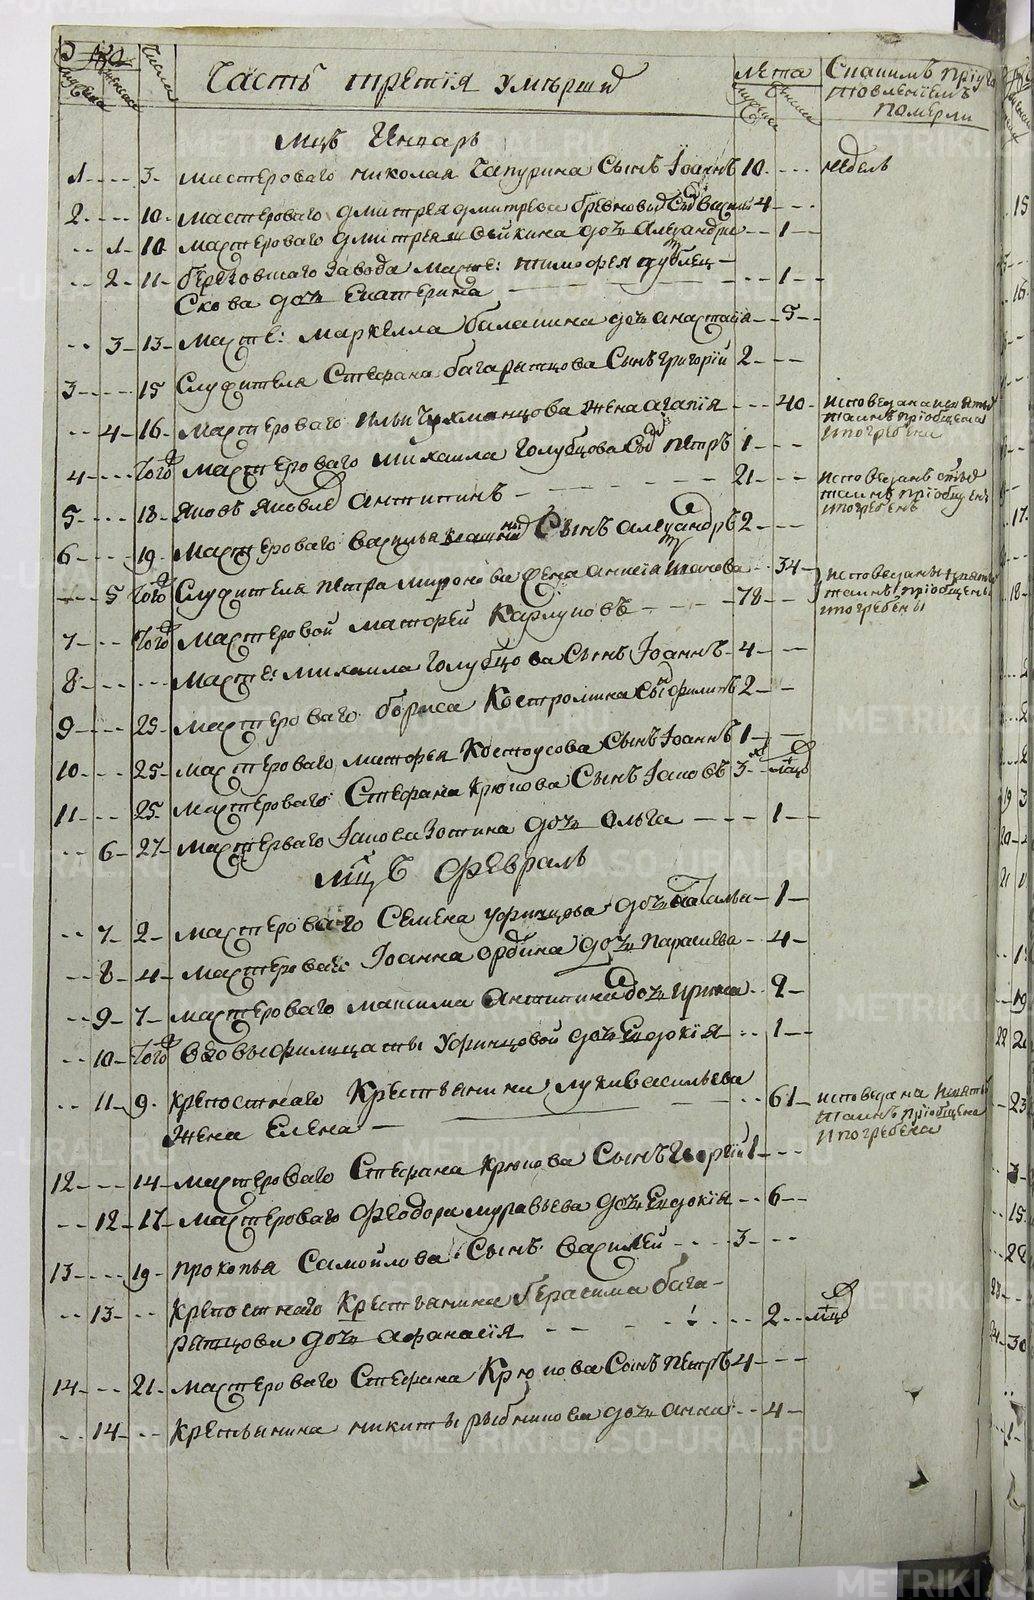 Часть третія умерши
Лета
Спаким пріуго
товленіемъ
померли
Числа
мцъ Генварь
1 3 мастероваго николая Чапурина Сынъ Іоаннъ 10 недель
2 10 мастероваго дмитрея дмитрева 4
1 10 мастероваго дмитрея дочь Алеѯандра 1
2 11 березовскаго завода масте: тимофея дублец
Скова дочь Екатерина 1
3 13 масте: маркелла балакина дочь анастасія 5
3 15 Служителя Стефана багарятцова Сынъ григорій 2
4 16 мастероваго ильи жена агапія 40
исповедана и святы
таинъ пріобщена
и погребена
4 Того мастероваго михаила голубцова Сынъ петръ 1
5 18 яковъ яковле антипинъ 21
исповеданъ святы
таинъ пріобщенъ
и погребенъ
6 19 мастероваго василья Сынъ алеѯандръ 2
5 Того Служителя петра миронова жена анисія 34
7 Того мастеровой матфей Карлуковъ 78
исповеданы и святы
таинъ пріобщены
и погребены
8 масте: михаила голубцова Сынъ Іоаннъ 4
9 25 мастероваго бориса Костромина Сынъ филипъ 2
10 25 мастероваго матфея Костоусова Сынъ Іоаннъ 1
11 25 мастероваго Стефана Крюкова Сынъ Іаковъ 3 мцо
6 27 мастероваго Іакова Зотина дочь Ольга 1
мцъ февраль
7 2 мастероваго Семена Уфинцова дочь наталья 1
8 4 мастероваго Іоанна ордина дочь параскева 4
9 7 мастероваго максима Антипина дочь ирина 2
10 Того вдовы филицаты Уфинцовой дочь Евдокія 1
11 9 крепостнаго Крестьянина луки васильева
жена Елена 61
исповедана и святы
таинъ пріобщена
и погребена
12 14 мастероваго Стефана Крюкова Сынъ Георгій 1
12 17 мастероваго феодора муравьева дочь Евдокія 6
13 19 прокопья Самойлова Сынъ василей 3
13 крепостнаго Крестьянина герасима бага
рятцова дочь афанасія 2 мцо
14 21 мастероваго Стефана Крюкова Сынъ петръ 4
14 крестьянина никиты рыбникова дочь анна 4
METRIKI.GASO-URAL.RU